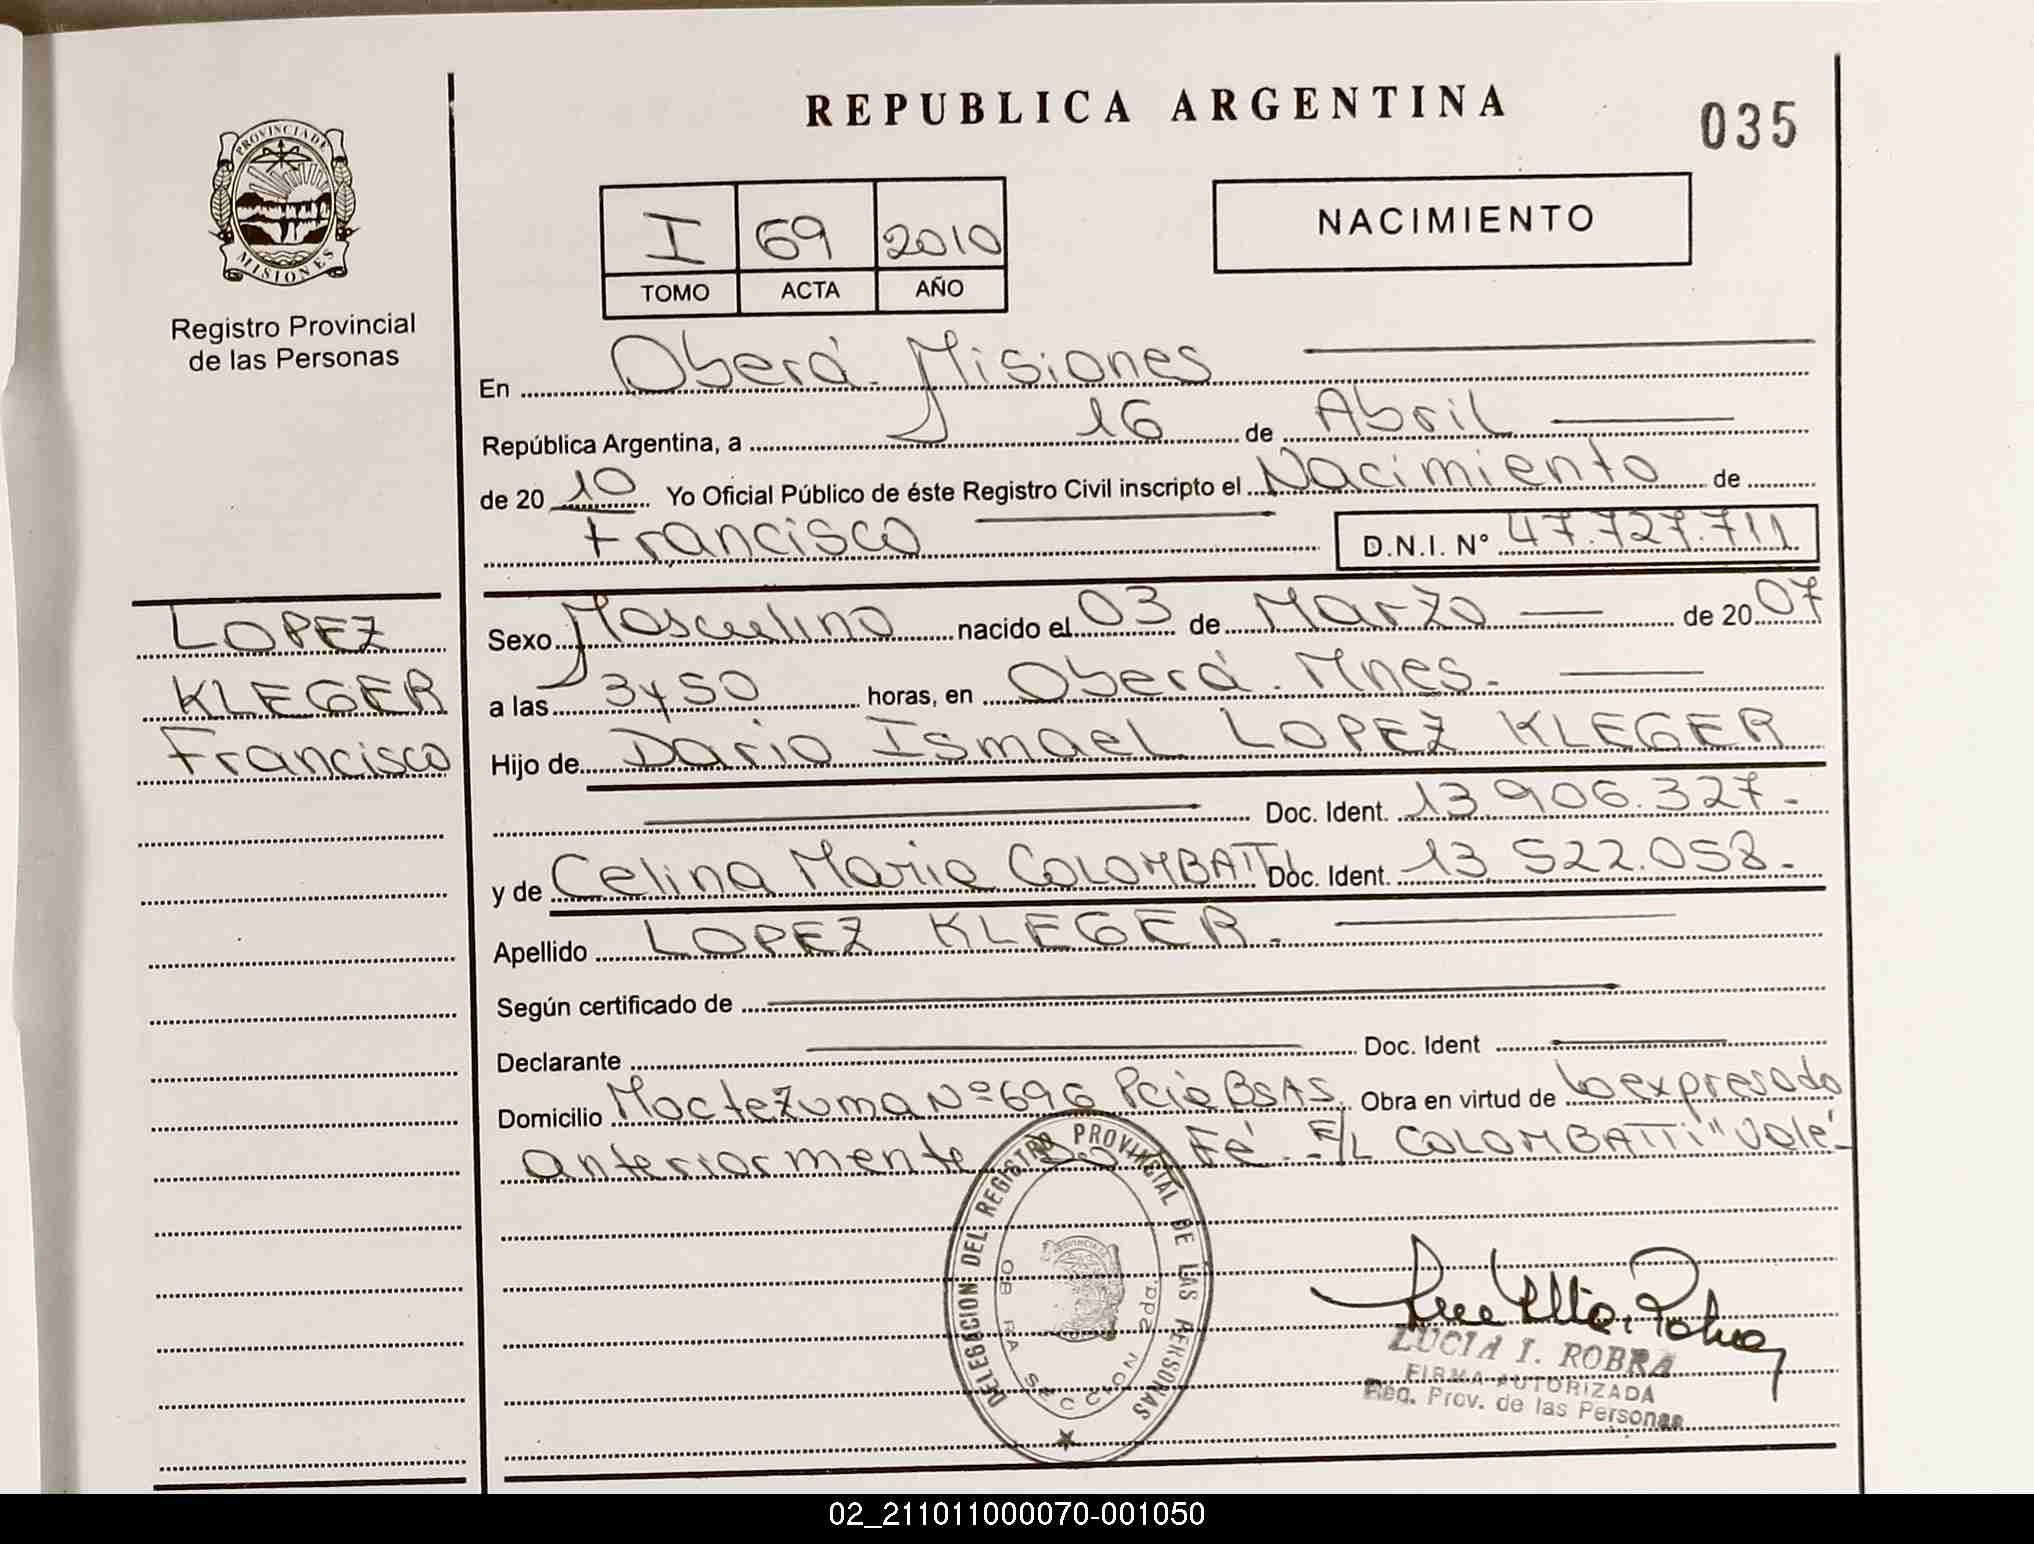 REPUBLICA ARGENTINA
035
PROVINCIA DE
MISIONES
Registro Provincial
de las Personas
I 69 2010
TOMO ACTA AÑO
NACIMIENTO
En Oberá. Misiones
República Argentina, a 16 de Abril
de 20 10 Yo Oficial Público de éste Registro Civil inscripto el Nacimiento de
Francisco D.N.I. N° 47.727.711
LOPEZ
KLEGER
Francisco
Sexo Masculino nacido el 03 de Marzo de 20 07
a las 3y50 horas, en Oberá. Mnes.
Hijo de Dario Ismael LOPEZ KLEGER
Doc. Ident. 13.906.327.
y de Celina Maria COLOMBATTI Doc. Ident. 13 522.058.
Apellido LOPEZ KLEGER.
Según certificado de
Declarante Doc. Ident
Domicilio Moctezuma Nº 696 Pcia BSAS. Obra en virtud de lo expresado
anteriormente Doy Fé. E/L COLOMBATTI "Vale"
DELEGACION DEL REGISTRO PROVINCIAL DE LAS PERSONAS
OBERA SECCION 2da.
LUCIA I. ROBRA
FIRMA AUTORIZADA
Reg. Prov. de las Personas
02_211011000070-001050